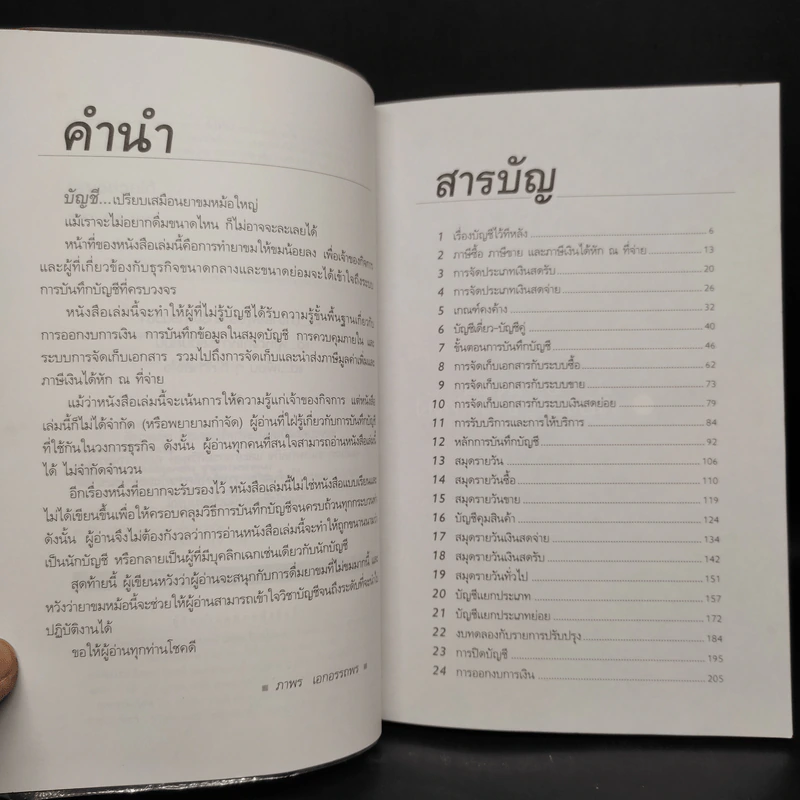 คำนำ
บัญชี...เปรียบเสมือนยาขมหม้อใหญ่
แม้เราจะไม่อยากดื่มขนาดไหน ก็ไม่อาจจะละเลยได้
หน้าที่ของหนังสือเล่มนี้คือการทำยาขมให้ขมน้อยลง เพื่อเจ้าของกิจการ
และผู้ที่เกี่ยวข้องกับธุรกิจขนาดกลางและขนาดย่อมจะได้เข้าใจถึงระบบ
การบันทึกบัญชีที่ครบวงจร
หนังสือเล่มนี้จะทำให้ผู้ที่ไม่รู้บัญชีได้รับความรู้ขั้นพื้นฐานเกี่ยวกับ
การออกงบการเงิน การบันทึกข้อมูลในสมุดบัญชี การควบคุมภายใน และ
ระบบการจัดเก็บเอกสาร รวมไปถึงการจัดเก็บและนำส่งภาษีมูลค่าเพิ่มและ
ภาษีเงินได้หัก ณ ที่จ่าย
แม้ว่าหนังสือเล่มนี้จะเน้นการให้ความรู้แก่เจ้าของกิจการ แต่หนังสือ
เล่มนี้ก็ไม่ได้จำกัด (หรือพยายามกำจัด) ผู้อ่านที่ใฝ่รู้เกี่ยวกับการบันทึกบัญชี
ที่ใช้กันในวงการธุรกิจ ดังนั้น ผู้อ่านทุกคนที่สนใจสามารถอ่านหนังสือเล่มนี้
ได้ ไม่จำกัดจำนวน
อีกเรื่องหนึ่งที่อยากจะรับรองไว้ หนังสือเล่มนี้ไม่ใช่หนังสือแบบเรียนและ
ไม่ได้เขียนขึ้นเพื่อให้ครอบคลุมวิธีการบันทึกบัญชีจนครบถ้วนทุกกระบวนท่า
ดังนั้น ผู้อ่านจึงไม่ต้องกังวลว่าการอ่านหนังสือเล่มนี้จะทำให้ถูกขนานนามว่า
เป็นนักบัญชี หรือกลายเป็นผู้ที่มีบุคลิกเฉกเช่นเดียวกับนักบัญชี
สุดท้ายนี้ ผู้เขียนหวังว่าผู้อ่านจะสนุกกับการดื่มยาขมที่ไม่ขมมากนี้ และ
หวังว่ายาขมหม้อนี้จะช่วยให้ผู้อ่านสามารถเข้าใจวิชาบัญชีจนถึงระดับที่จะนำไป
ปฏิบัติงานได้
ขอให้ผู้อ่านทุกท่านโชคดี
ภาพร เอกอรรถพร
สารบัญ
1 เรื่องบัญชีไว้ทีหลัง 6
2 ภาษีซื้อ ภาษีขาย และภาษีเงินได้หัก ณ ที่จ่าย 13
3 การจัดประเภทเงินสดรับ 20
4 การจัดประเภทเงินสดจ่าย 26
5 เกณฑ์คงค้าง 32
6 บัญชีเดี่ยว-บัญชีคู่ 40
7 ขั้นตอนการบันทึกบัญชี 46
8 การจัดเก็บเอกสารกับระบบซื้อ 62
9 การจัดเก็บเอกสารกับระบบขาย 73
10 การจัดเก็บเอกสารกับระบบเงินสดย่อย 79
11 การรับบริการและการให้บริการ 84
12 หลักการบันทึกบัญชี 92
13 สมุดรายวัน 106
14 สมุดรายวันซื้อ 110
15 สมุดรายวันขาย 119
16 บัญชีคุมสินค้า 124
17 สมุดรายวันเงินสดจ่าย 134
18 สมุดรายวันเงินสดรับ 142
19 สมุดรายวันทั่วไป 151
20 บัญชีแยกประเภท 157
21 บัญชีแยกประเภทย่อย 172
22 งบทดลองกับรายการปรับปรุง 184
23 การปิดบัญชี 195
24 การออกงบการเงิน 205